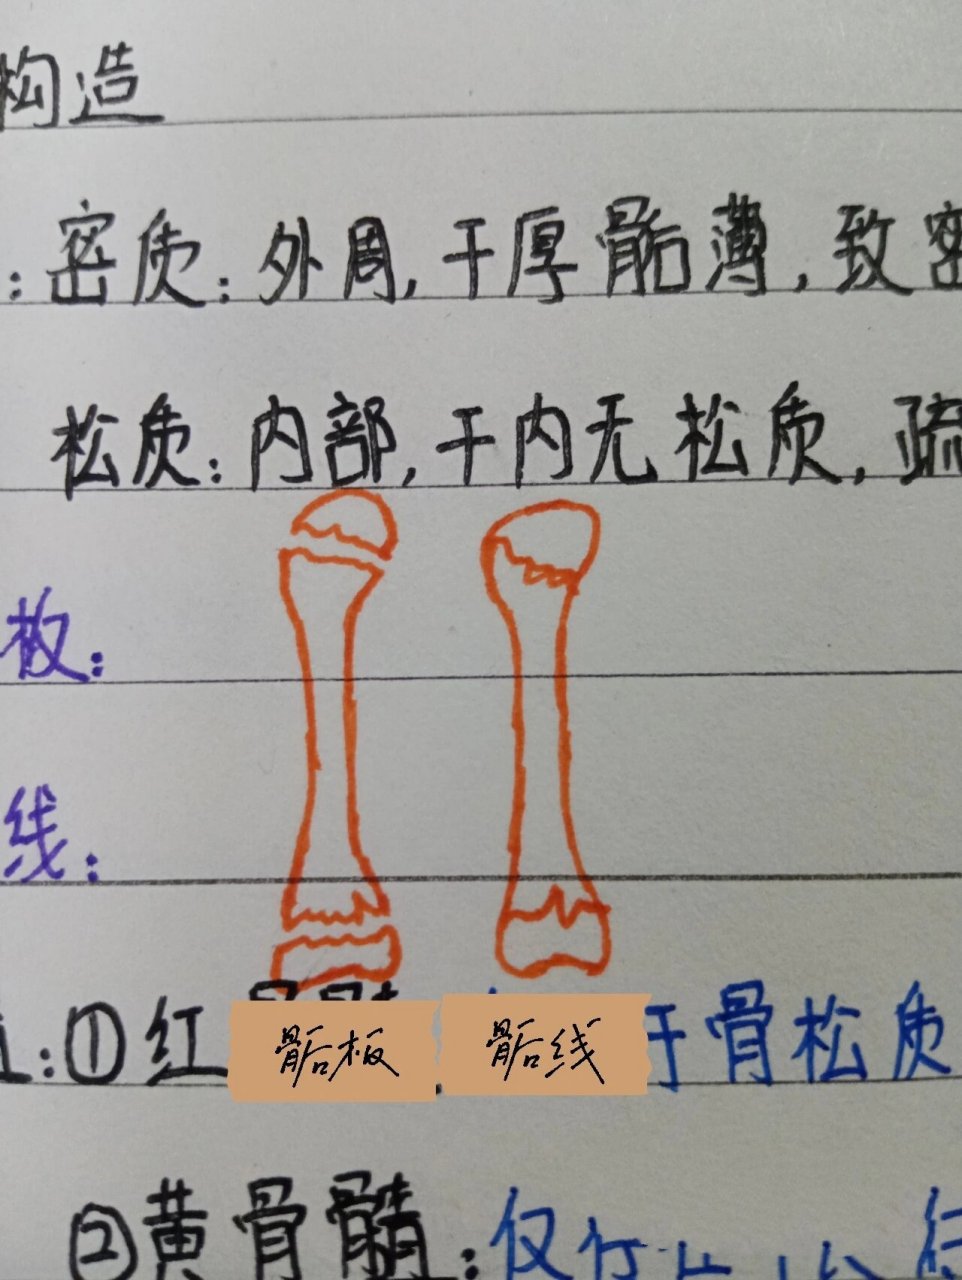 构造
：密质：外周，干厚骺薄，致密
松质：内部，干内无松质，疏
板：
线：
：①红
骺板 骺线
于骨松质
②黄骨髓：仅